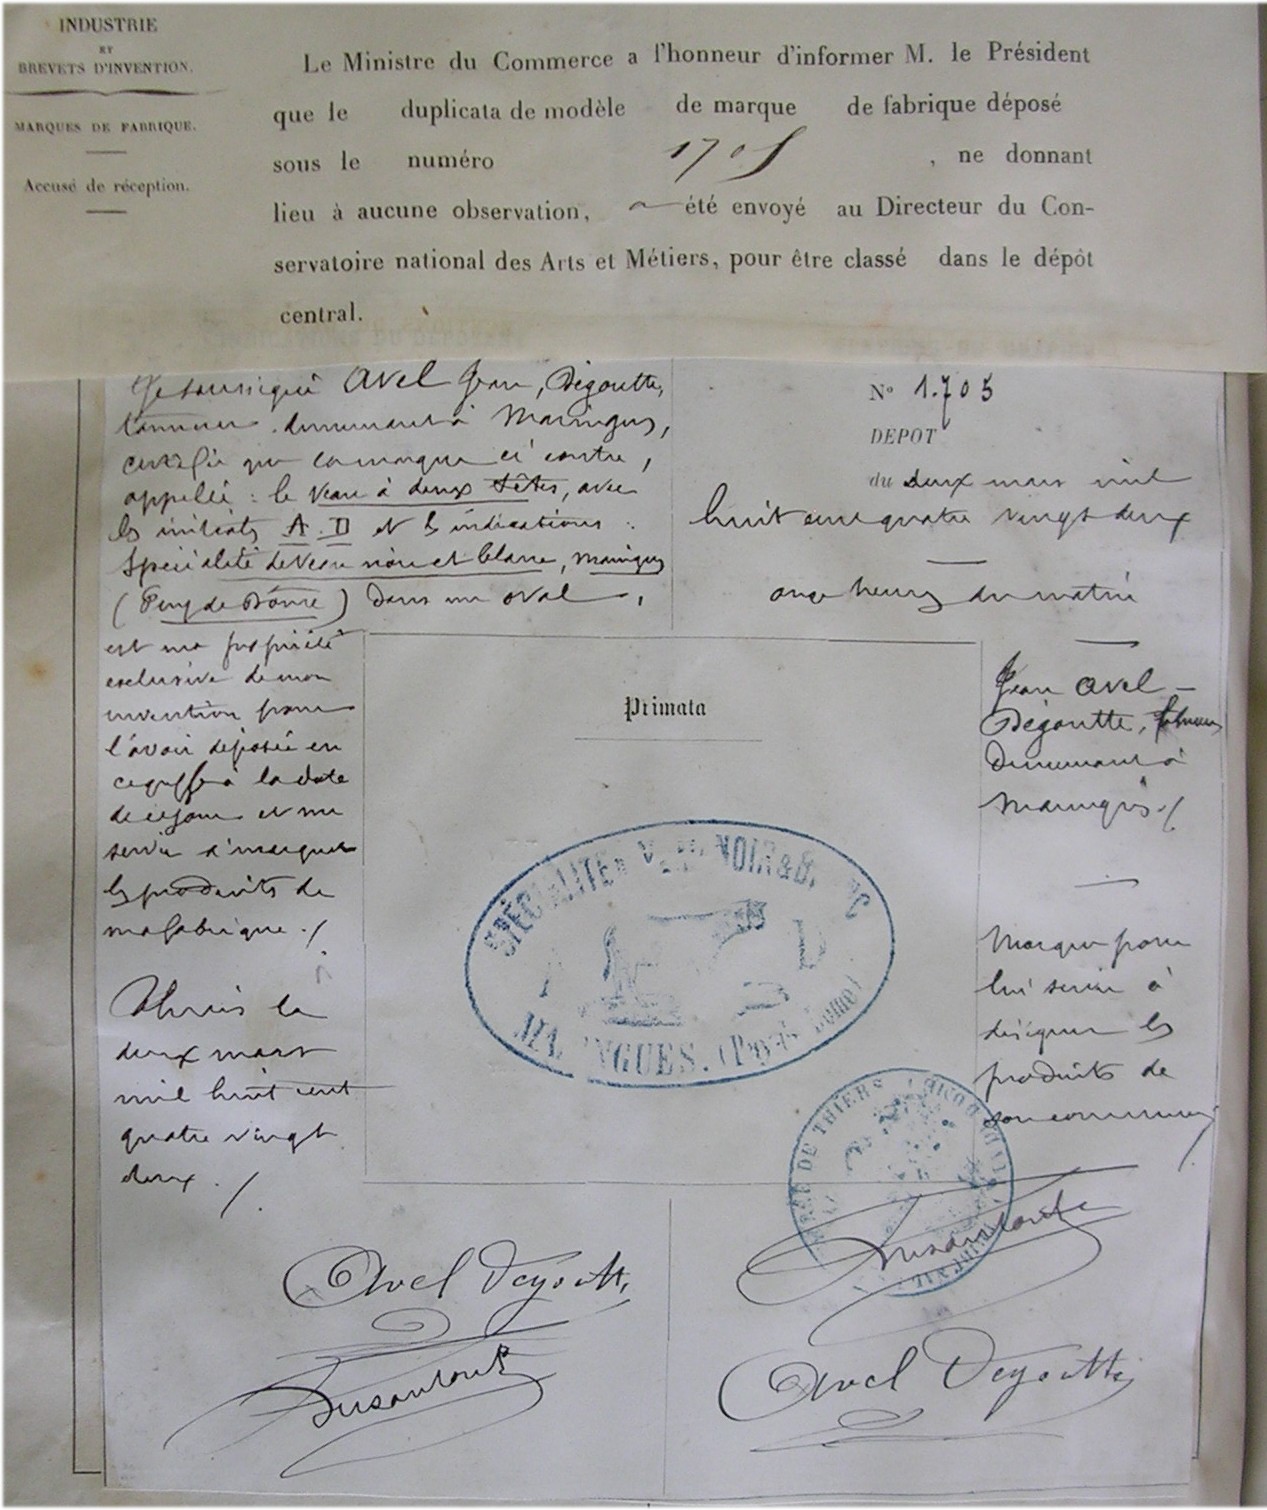 INDUSTRIE
ET
BREVETS D'INVENTION.
MARQUES DE FABRIQUE.
Accusé de réception.
Le Ministre du Commerce a l'honneur d'informer M. le Président
que le duplicata de modèle de marque de fabrique déposé
sous le numéro 1705, ne donnant
lieu à aucune observation, a été envoyé au Directeur du Con-
servatoire national des Arts et Métiers, pour être classé dans le dépôt
central.
Je soussigné Avel Jean, Dégoutte,
tanneur demeurant à Maringues,
certifie que la marque ci contre,
appelée : le Veau à deux têtes, avec
les initiales A. D et les indications :
Spécialité de Veau noir et blanc, Maringues
(Puy de Dôme) dans un oval,
est ma propriété
exclusive de mon
invention pour
l'avoir déposée en
ce greffe à la date
de ce jour et me
servir à marquer
les produits de
ma fabrique ./
Thiers le
deux mars
mil huit cent
quatre vingt
deux ./.
Nº 1.705
DEPOT
du deux mars mil
huit cent quatre vingt deux
onze heures du matin
Jean Avel -
Dégoutte, tanneur
demeurant à
Maringues ./
Marque pour
lui servir à
désigner les
produits de
son commerce
/
Primata
SPÉCIALITÉ DE VEAU NOIR & BLANC
A D
MARINGUES. (Puy de Dome)
DE THIERS
Avel Degoutte
Avel Degoutte